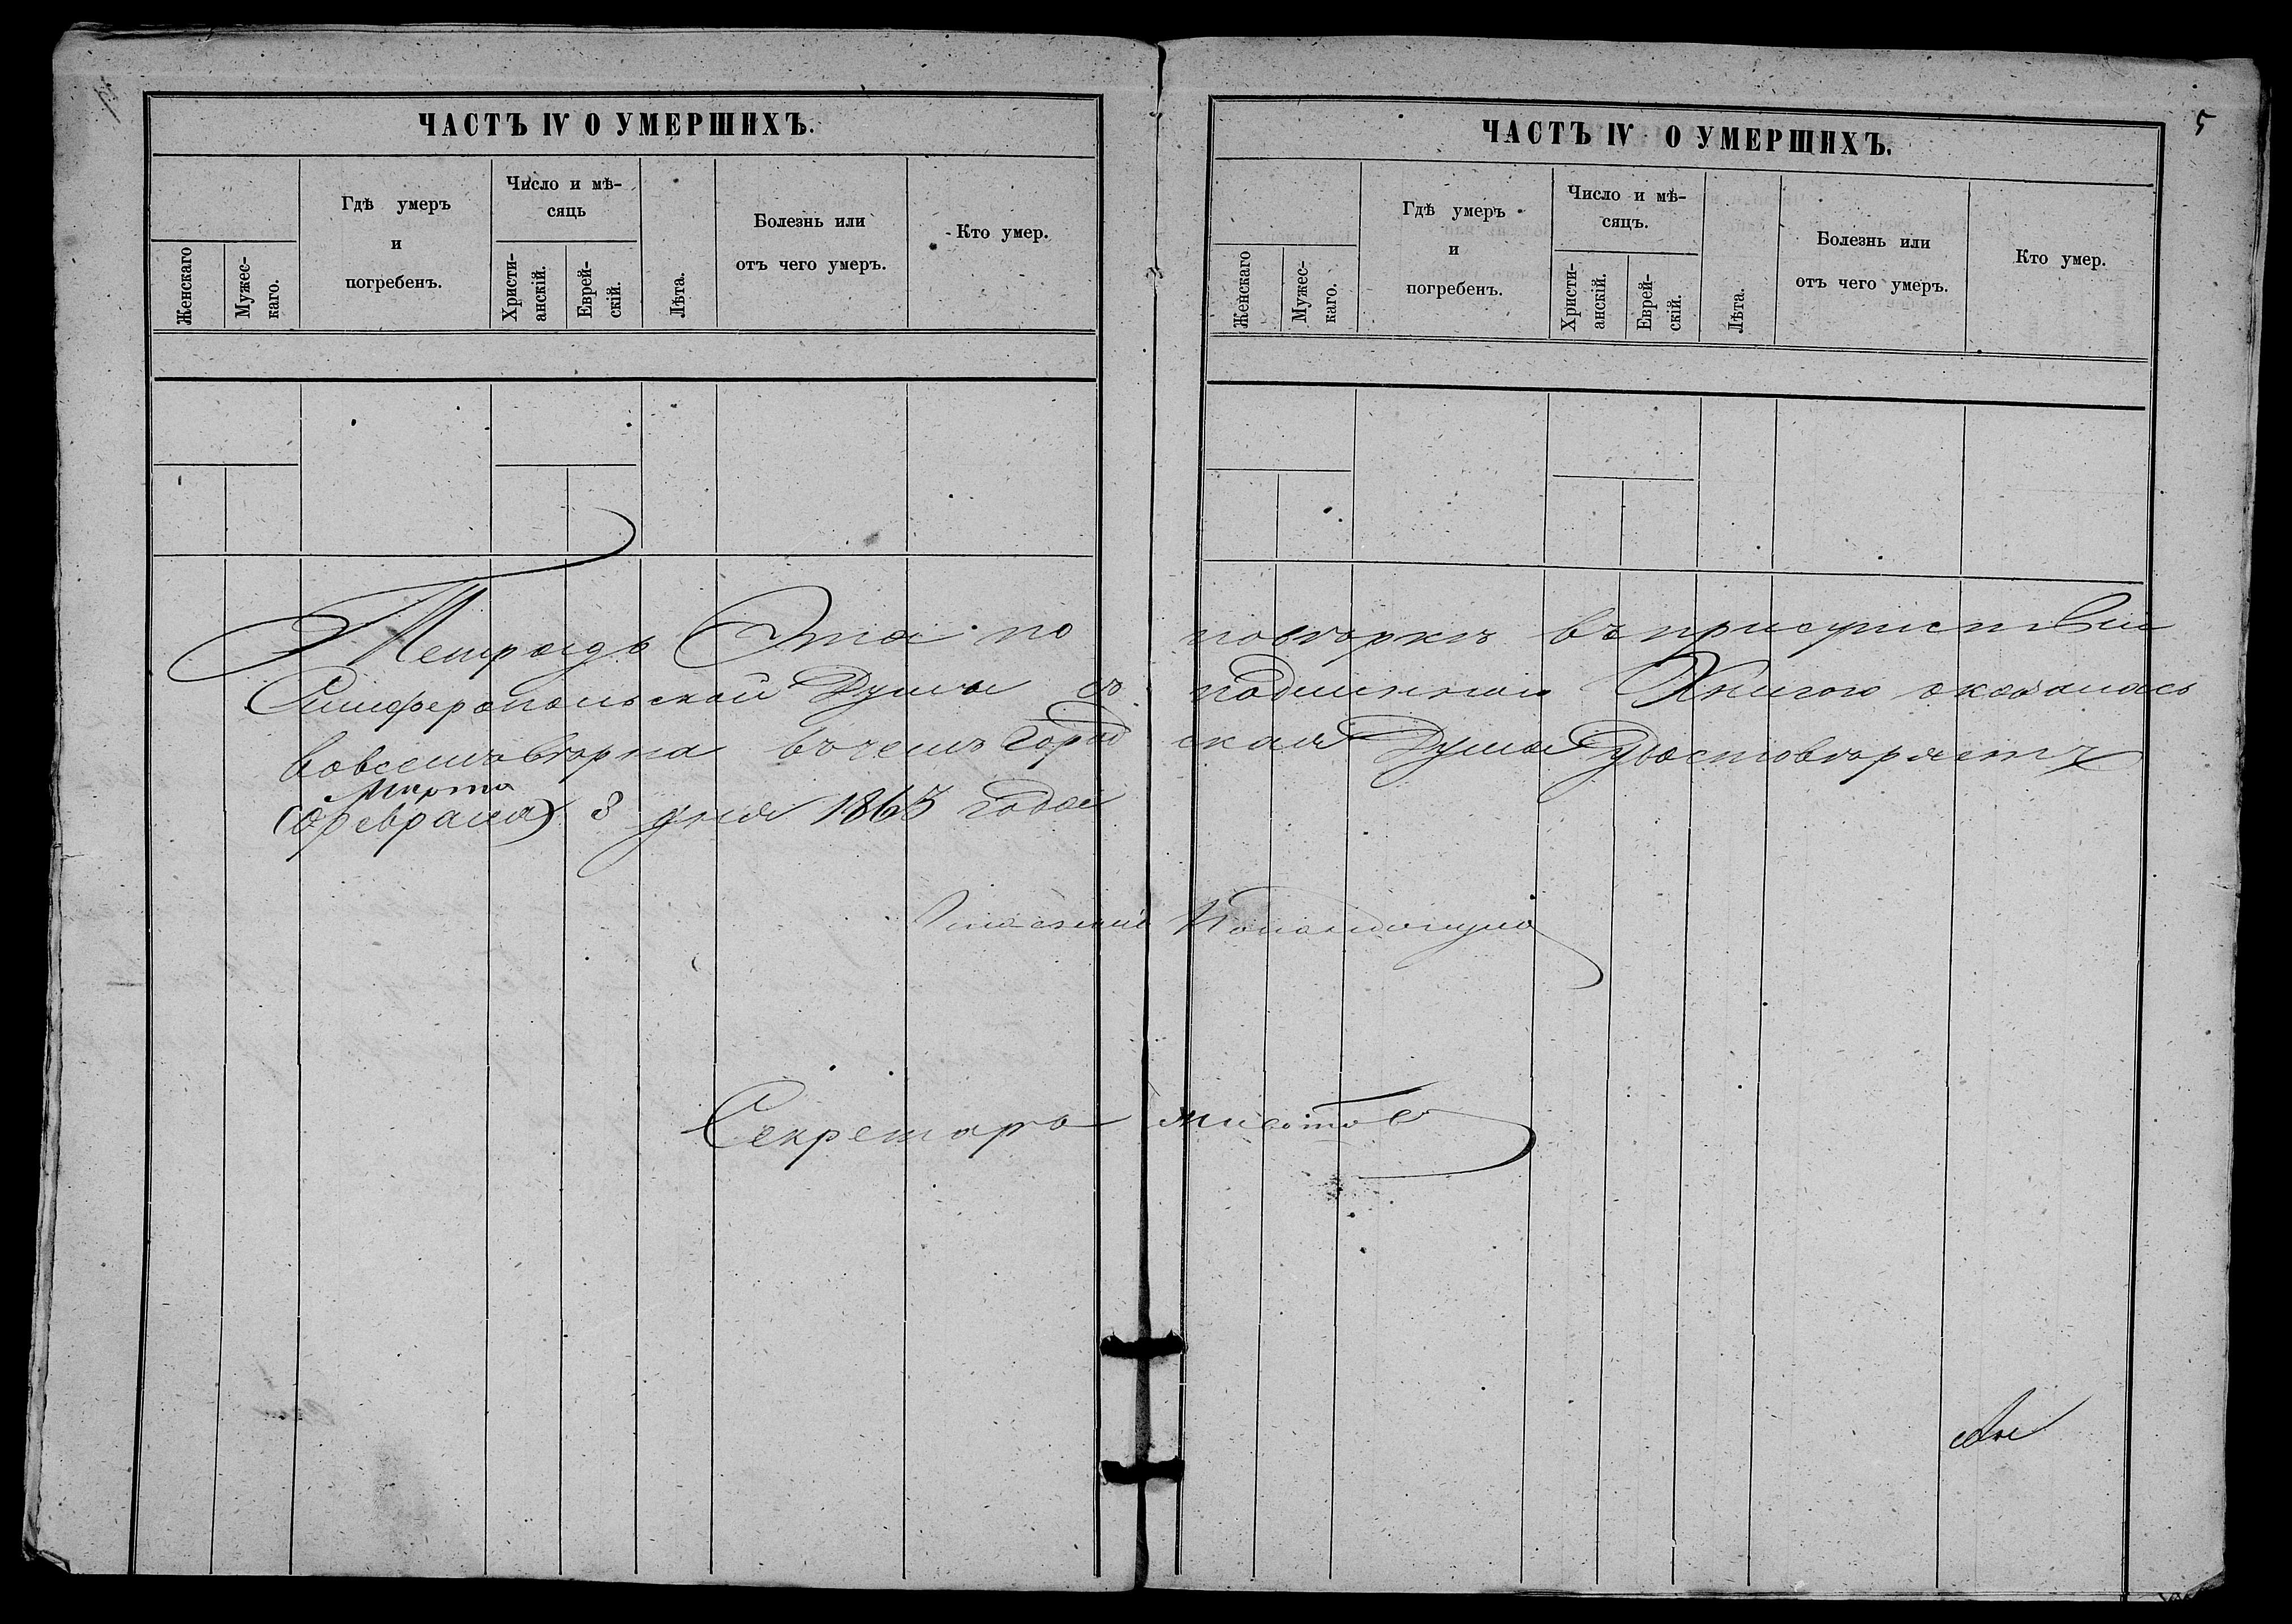 ЧАСТЪ IV О УМЕРШИХЪ.
Женскаго
Мужес-
каго.
Гдѣ умеръ
и
погребенъ.
Число и мѣ-
сяць
Христи-
анскій.
Еврей-
скій.
Лѣта.
Болезнь или
отъ чего умеръ.
Кто умер.
ЧАСТЪ IV О УМЕРШИХЪ.
5
Женскаго
Мужес-
каго.
Гдѣ умеръ
и
погребенъ.
Число и мѣ-
сяцъ.
Христи-
анскій.
Еврей-
скій.
Лѣта.
Болезнь или
отъ чего умеръ.
Кто умер.
Тетрадь Эта по повѣркѣ въ присутствіи
Симферопольской Думы съ подлинною Книгою оказалась
вовсемъ вѣрна въ чемъ Городская Дума Удостовѣряетъ
Марта
(февраля) 8 дня 1863 года
Гласный
Секретарь